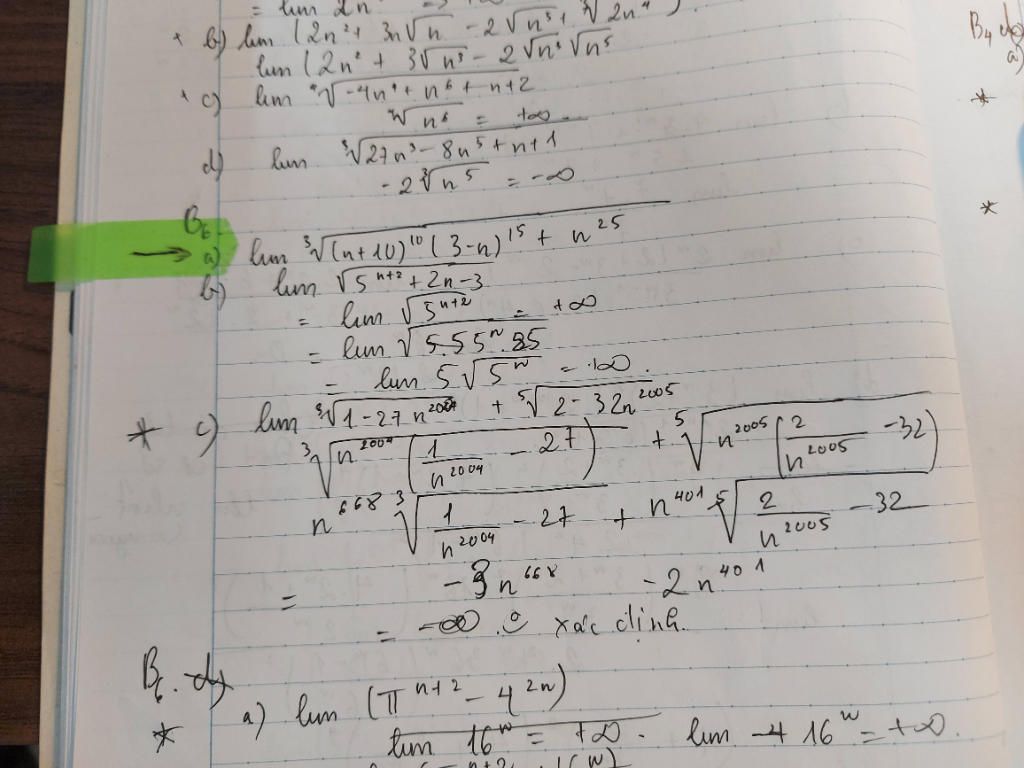 = lim 2n
+ b) lim (2n² + 3n√n - 2√n⁵ + ∜2n⁴).
lim (2n² + 3√n³ - 2√n⁵ √n⁵
+ c) lim ∜-4n⁴ + n⁶ + n+2
∜n⁶ = +∞
d) lim ∛27n³ - 8n⁵ + n+1
-2∛n⁵ = -∞
B₆
→ a) lim ∛(n+10)¹⁰(3-n)¹⁵ + n²⁵
b) lim √5ⁿ⁺² + 2n-3
= lim √5ⁿ⁺² = +∞
= lim √5.55ⁿ.25
= lim 5√5ⁿ = +∞.
* c) lim ∛1-27n²⁰⁰⁴ + ⁵√2-32n²⁰⁰⁵
∛n²⁰⁰⁴(1/n²⁰⁰⁴ - 27) + ⁵√n²⁰⁰⁵(2/n²⁰⁰⁵ - 32)
n⁶⁶⁸ ∛1/n²⁰⁰⁴ - 27 + n⁴⁰¹ ⁵√2/n²⁰⁰⁵ - 32
= -3n⁶⁶⁸ - 2n⁴⁰¹
= -∞. xác định.
B₆. d)
* a) lim (πⁿ⁺² - 4²ⁿ)
lim 16ⁿ = +∞. lim -4 16ⁿ = +∞.
B₄
a)
*
*